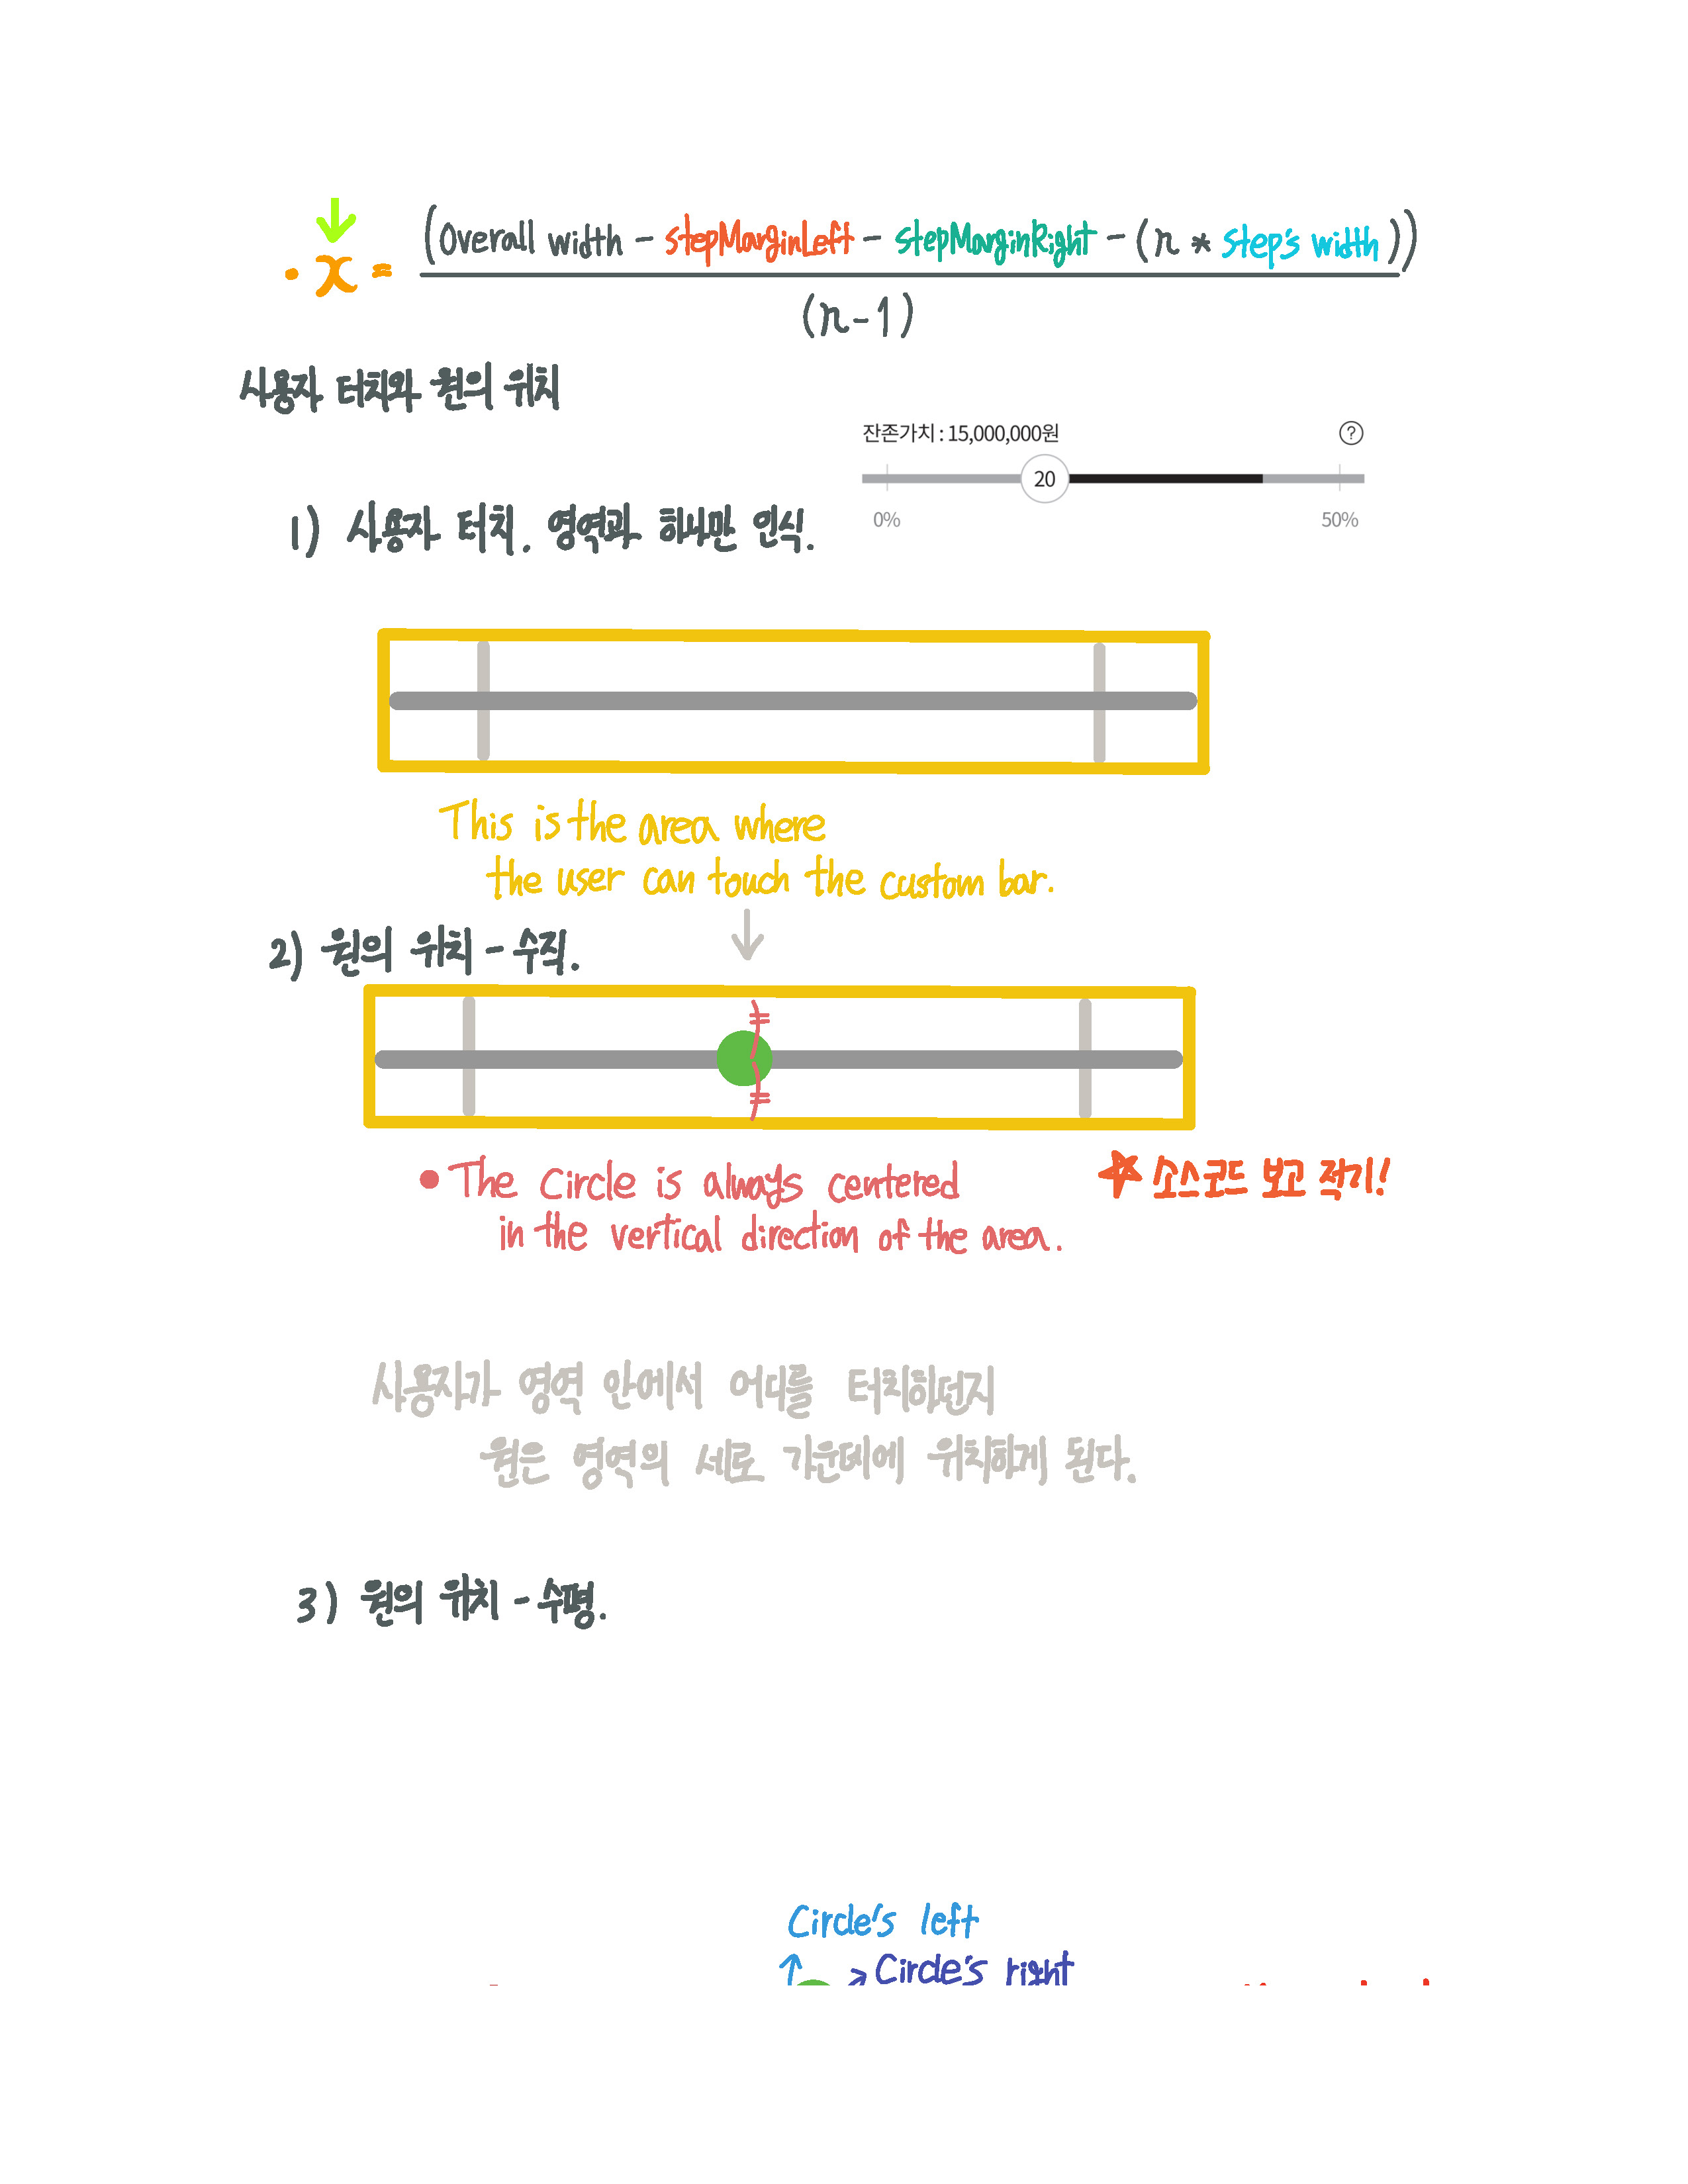 · x = (Overall width - stepMarginLeft - stepMarginRight - (n * step's width))
(n-1)
사용자 터치와 원의 위치
잔존가치 : 15,000,000원 ?
20
0% 50%
1) 사용자 터치. 영역과 하나만 인식.
This is the area where
the user can touch the custom bar.
2) 원의 위치 - 수직.
• The Circle is always centered
in the vertical direction of the area.
☆ 소스코드 보고 적기!
사용자가 영역 안에서 어디를 터치하던지
원은 영역의 세로 가운데에 위치하게 된다.
3) 원의 위치 - 수평.
Circle's left
Circle's right